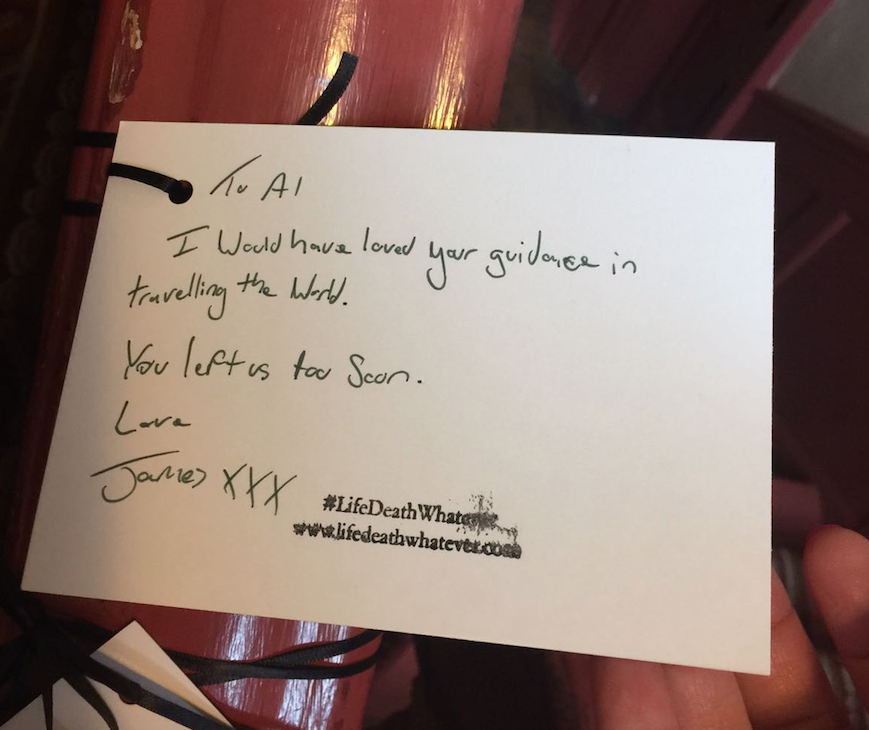 To Al
I Would have loved your guidance in
travelling the World.
You left us too Soon.
Love
James XXX
#LifeDeathWhatever
www.lifedeathwhatever.com